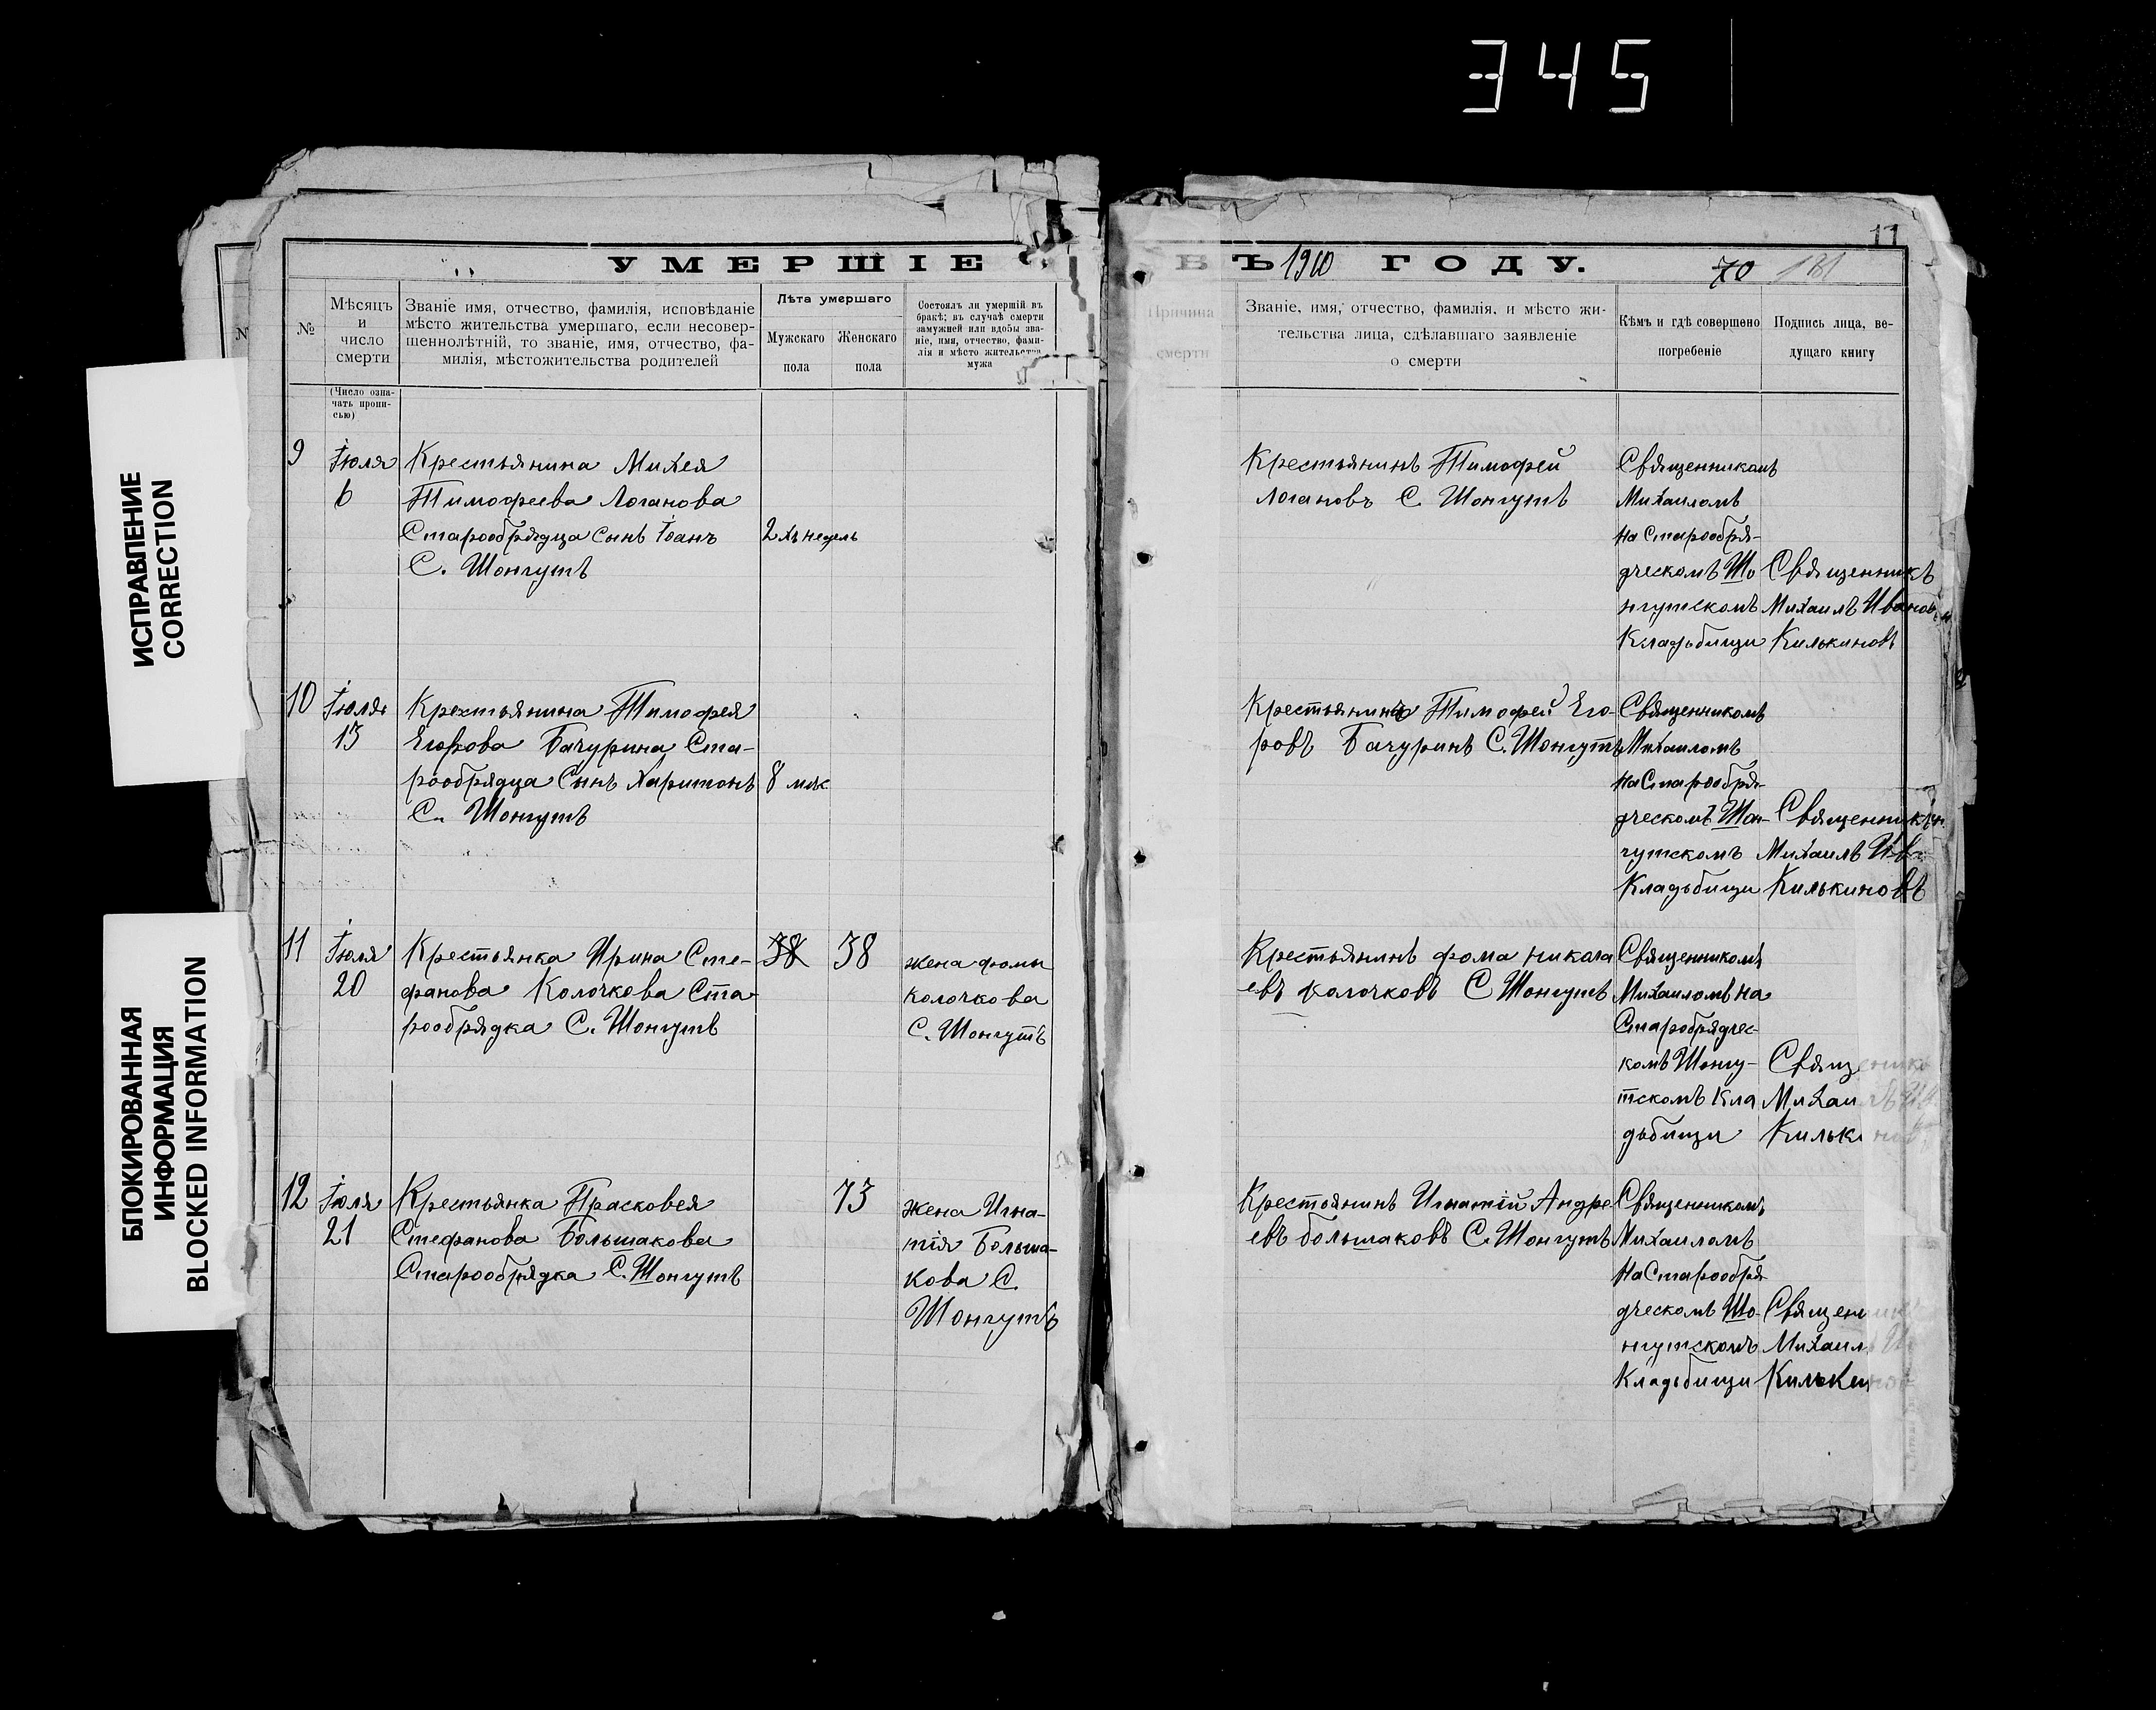 345
11
УМЕРШІЕ ВЪ 1910 ГОДУ.
70 181
№
Мѣсяцъ
и
число
смерти
(Число озна-
чать пропи-
сью)
Званіе имя, отчество, фамилія, исповѣданіе
мѣсто жительства умершаго, если несовер-
шеннолѣтній, то званіе, имя, отчество, фа-
милія, мѣстожительства родителей
Лѣта умершаго
Мужскаго
пола
Женскаго
пола
Состоялъ ли умершій въ
бракѣ; въ случаѣ смерти
замужней или вдовы зва-
ніе, имя, отчество, фами-
лія и мѣсто жительства
мужа
Причина
смерти
Званіе, имя, отчество, фамилія, и мѣсто жи-
тельства лица, сдѣлавшаго заявленіе
о смерти
Кѣмъ и гдѣ совершено
погребеніе
Подпись лица, ве-
дущаго книгу
9
Іюля
6
Крестьянина Михея
Тимофеева Логанова
Старообрядца Сынъ Іоанъ
С. Шонгутъ
2 хъ недель
Крестьянинъ Тимофей
Логановъ С Шонгутъ
Священникомъ
Михаиломъ
на Старообря-
дческомъ Шо
нгутскомъ
Кладьбищи
Священникъ
Михаилъ Иванов
Килькиновъ
10
Іюля
13
Крестьянина Тимофея
Егорова Бачурина Ста-
рообрядца Сынъ Харитонъ
С. Шонгутъ
8 мѣс
Крестьянинъ Тимофей Его-
ровъ Бачуринъ С. Шонгутъ
Священникомъ
Михаиломъ
на Старообря
дческомъ Шон-
гутскомъ
Кладьбищи
Священникъ
Михаилъ Ив
Килькиновъ
11
Іюля
20
Крестьянка Ирина Сте-
фанова Колочкова Ста
рообрядка С. Шонгутъ
38 38
жена фомы
колочкова
С. Шонгутъ
Крестьянинъ фома никола
евъ колочковъ С Шонгутъ
Священникомъ
Михаиломъ на
Старобрядчес-
комъ Шонгу-
тскомъ Кла
дьбищи
Священникъ
Михаилъ Ив
Килькиновъ
12
Іюля
21
Крестьянка Прасковея
Стефанова Большакова
Старообрядка С. Шонгутъ
73
жена Игна-
тія Больша-
кова С.
Шонгутъ
Крестьянинъ Игнатій Андре
евъ большаковъ С. Шонгутъ
Священникомъ
Михаиломъ
На Старообря
дческомъ Шо-
нгутскомъ
Кладьбищи
Священник
Михаил И
Килькинов
ИСПРАВЛЕНИЕ
CORRECTION
БЛОКИРОВАННАЯ
ИНФОРМАЦИЯ
BLOCKED INFORMATION